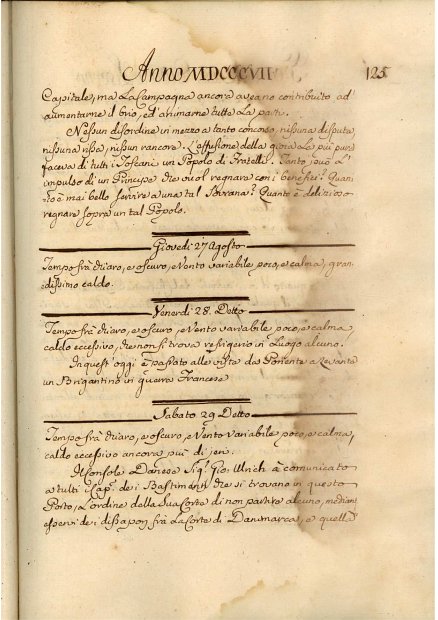 Anno MDCCCVII 125
Capitale, ma La Campagna ancora aveano contribuito ad
aumentarne il brio, ed animarne tutte La parti.
Nessun disordine in mezzo a tanto concorso, nissuna disputa
nissuna rissa, nissun rancore. L'effusione della gioia La più pura
faceva di tutti i Toscani un Popolo di Fratelli. Tanto può L'
impulso di un Principe che vuol regnare con i benefizi! Quan
to è mai bello servire a una tal Sovrana! Quanto è delizioso
regnare sopra un tal Popolo.
Giovedì 27 Agosto
Tempo frà chiaro, e oscuro, e Vento variabile poco, e calma, gran
dissimo caldo.
Venerdì 28. Detto
Tempo frà chiaro, e oscuro, e Vento variabile poco, e calma
caldo eccessivo, che non si trova refrigerio in Luogo alcuno.
In quest'oggi è passato alle vista da Ponente a Levante
un Brigantino in guerra Francese
Sabato 29 Detto
Tempo frà chiaro, e oscuro, e Vento variabile poco, e calma,
caldo eccessivo ancora più di jeri.
Il Console Danese Sigr Gio. Ulrich à comunicato
a tutti i Cap. dei Bastimenti che si trovano in questo
Porto, L'ordine della Sua Corte di non partire alcuno,
essendovi dei dissapori frà La Corte di Danimarca, e quella